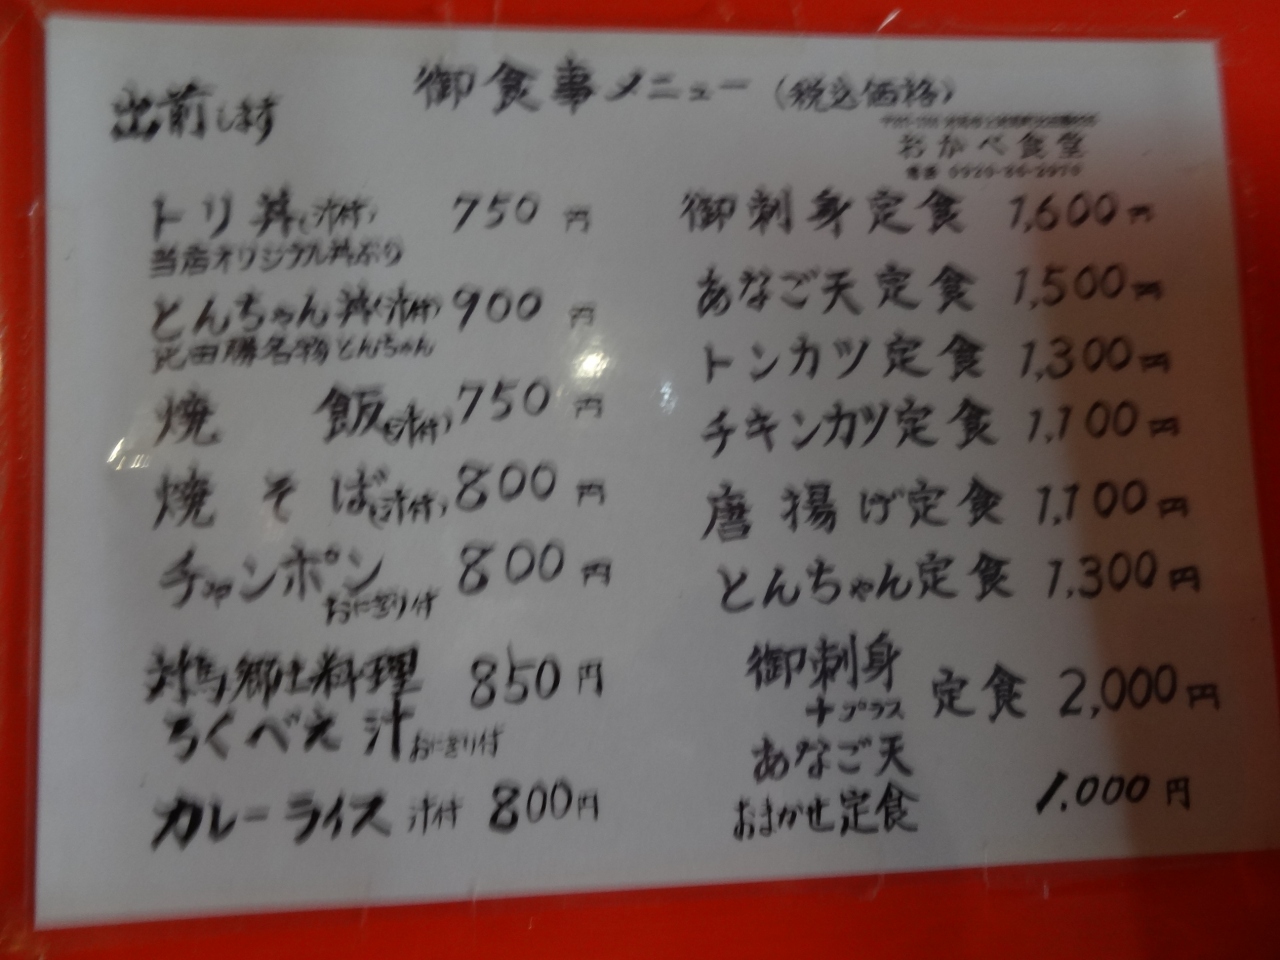 御食事メニュー（税込価格）
出前します
おかべ食堂
電話 0920-86-2970
トリ丼（汁付） 750円
当店オリジナル丼ぶり
とんちゃん丼（汁付） 900円
比田勝名物とんちゃん
焼飯（汁付） 750円
焼そば（汁付） 800円
チャンポン 800円
おにぎり付
対馬郷土料理 850円
ろくべえ汁 おにぎり付
カレーライス 汁付 800円
御刺身定食 1,600円
あなご天定食 1,500円
トンカツ定食 1,300円
チキンカツ定食 1,100円
唐揚げ定食 1,100円
とんちゃん定食 1,300円
御刺身
＋プラス 定食 2,000円
あなご天
おまかせ定食 1,000円